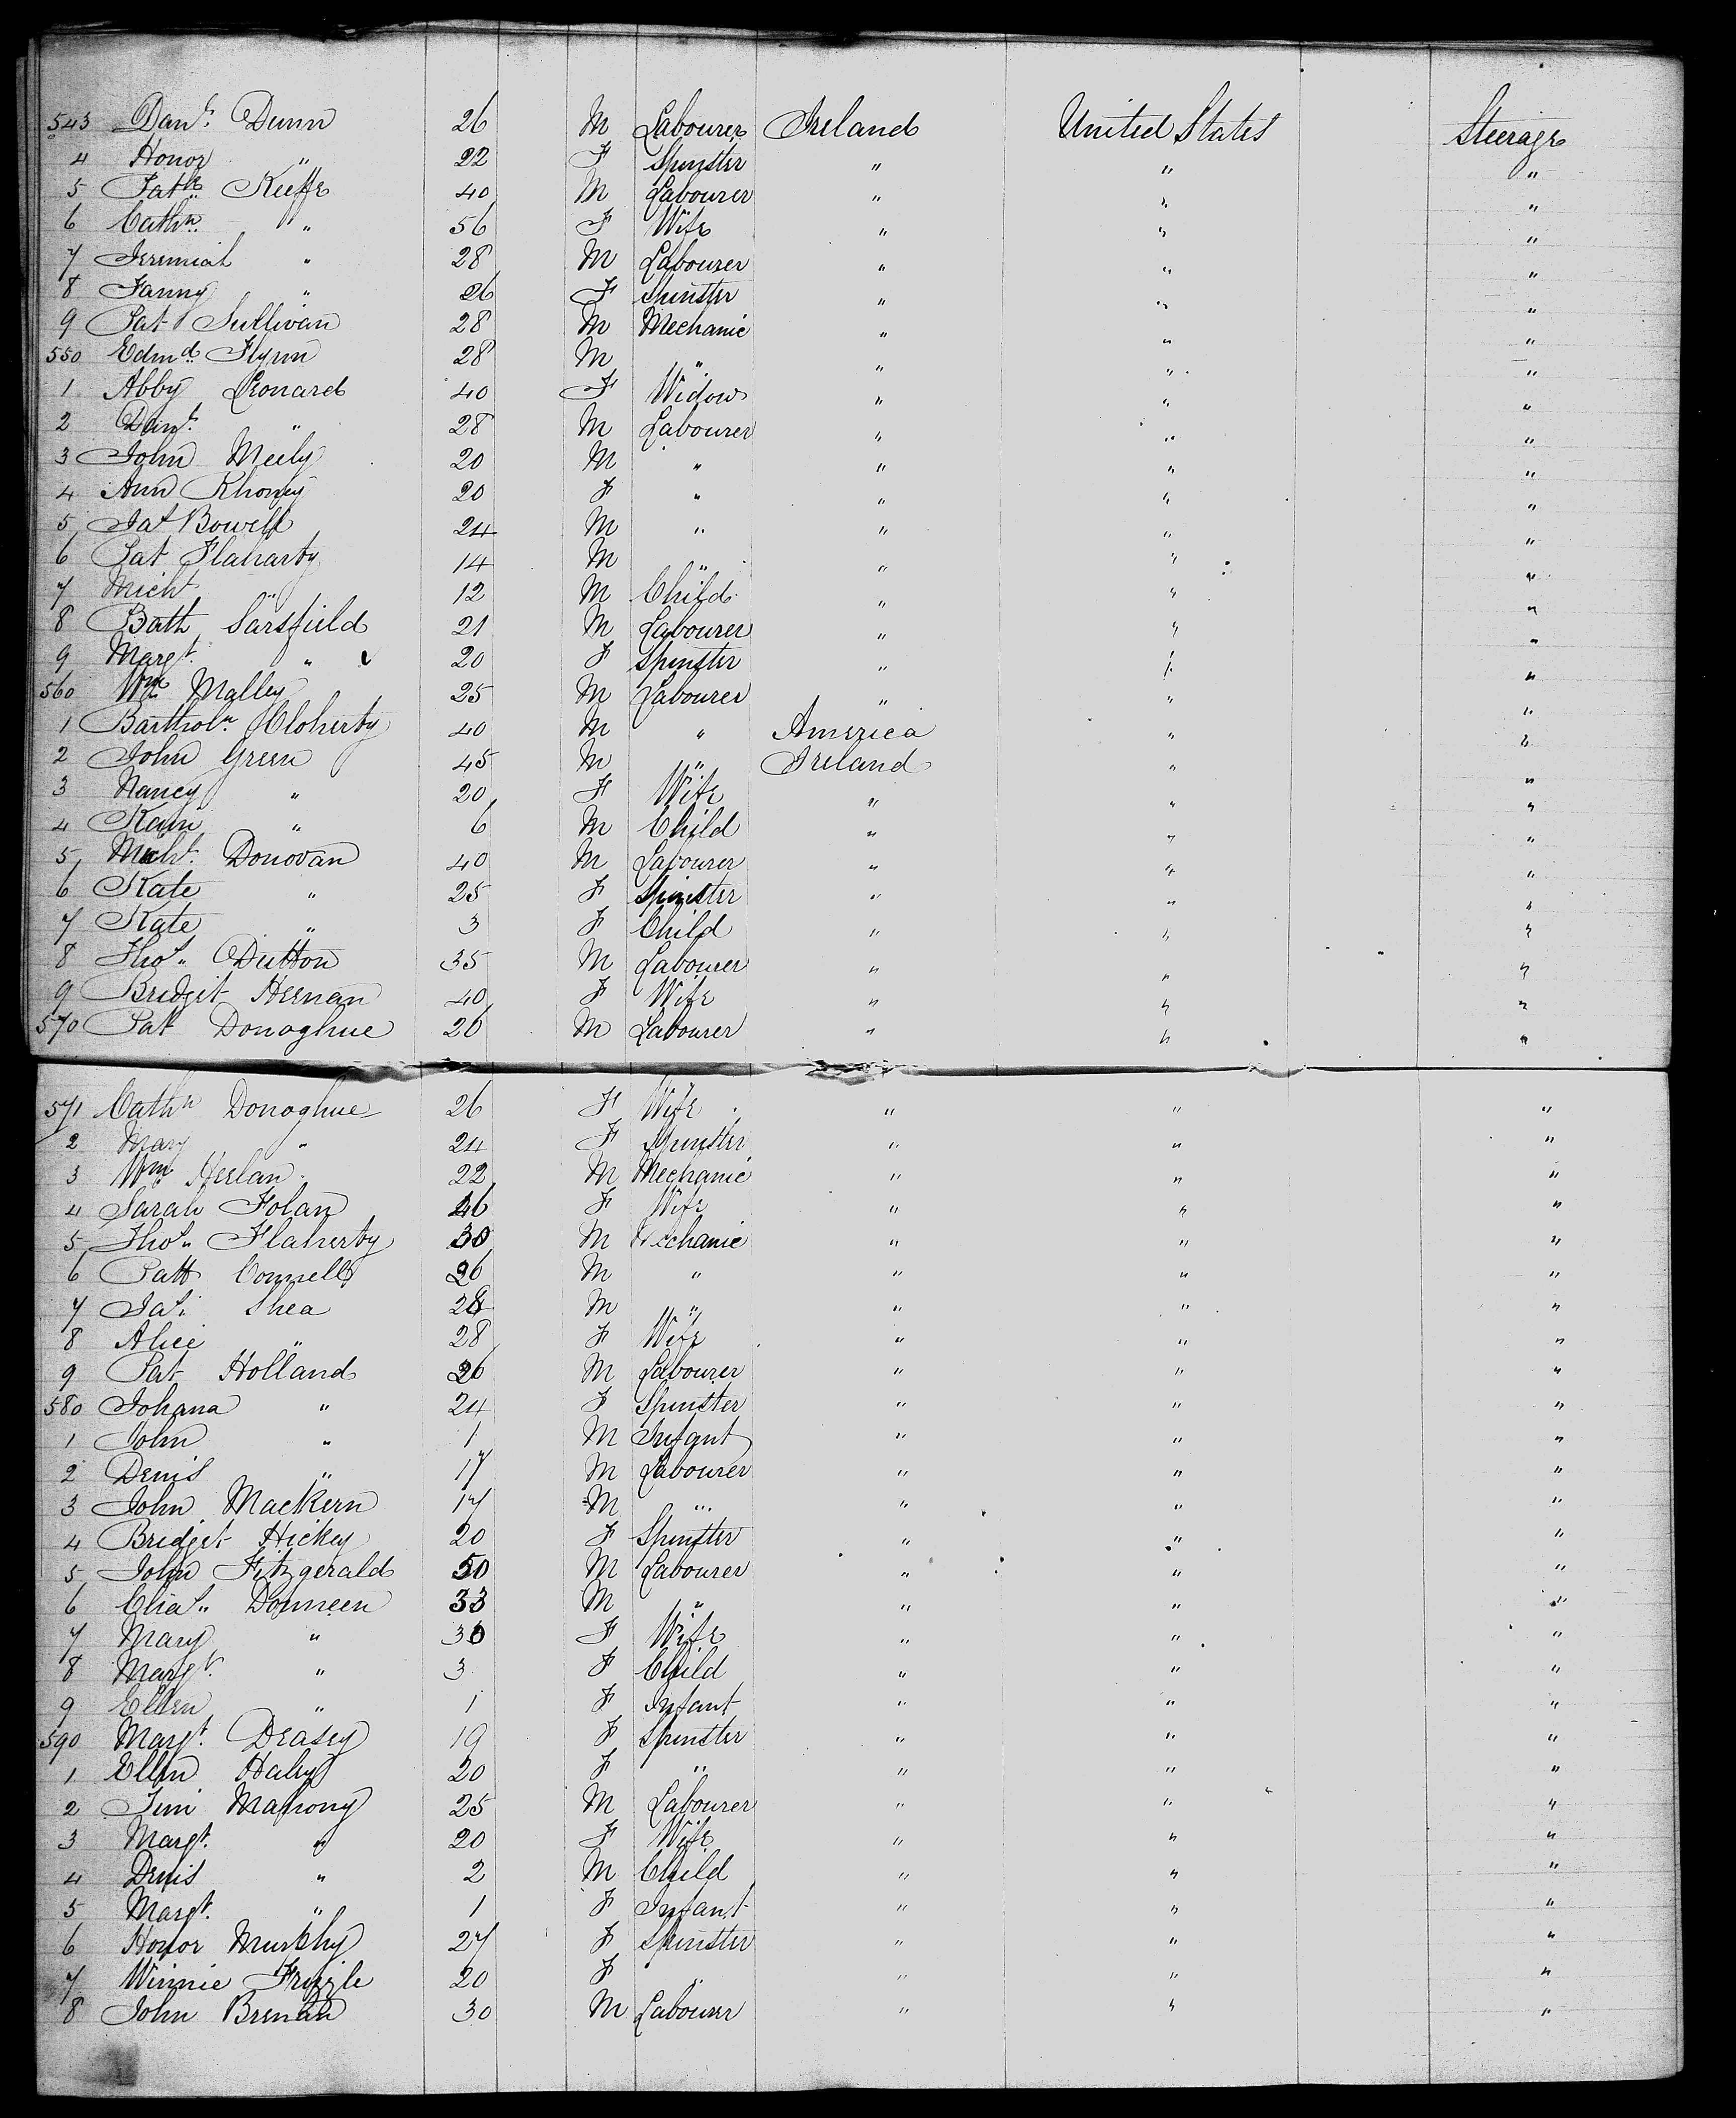 543 Danl. Dunn 26 M Labourer Ireland United States Steerage
4 Honor " 22 F Spinster " " "
5 Patk Keeffe 40 M Labourer " " "
6 Cathn. " 56 F Wife " " "
7 Jeremiah " 28 M Labourer " " "
8 Fanny " 26 F Spinster " " "
9 Pat Sullivan 28 M Mechanic " " "
550 Edmd. Flynn 28 M " " " "
1 Abby Leonard 40 F Widow " " "
2 Danl. " 28 M Labourer " " "
3 John Meely 20 M " " " "
4 Ann Rhoney 20 F " " " "
5 Jas Bowell 24 M " " " "
6 Pat Flaharty 14 M " " " "
7 Michl " 12 M Child " " "
8 Bath Sarsfield 21 M Labourer " " "
9 Margt. " 20 F Spinster " " "
560 Wm Malley 25 M Labourer " " "
1 Bartholw Cloherty 40 M " America " "
2 John Green 45 M " Ireland " "
3 Nancy " 20 F Wife " " "
4 " 6 M Child " " "
5 Michl. Donovan 40 M Labourer " " "
6 Kate " 25 F Spinster " " "
7 Kate " 3 F Child " " "
8 Thos. Dutton 35 M Labourer " " "
9 Bridget Hernan 40 F Wife " " "
570 Pat Donoghue 26 M Labourer " " "
571 Cathn Donoghue 26 F Wife " " "
2 Mary " 24 F Spinster " " "
3 Wm Herlan 22 M Mechanic " " "
4 Sarah Folan 46 F Wife " " "
5 Thos. Flaherty 30 M Mechanic " " "
6 Patt Connell 26 M " " " "
7 Jas. Shea 28 M " " " "
8 Alice " 28 F Wife " " "
9 Pat Holland 26 M Labourer " " "
580 Johana " 24 F Spinster " " "
1 John " 1 M Infant " " "
2 Denis " 17 M Labourer " " "
3 John Mackern 17 M " " " "
4 Bridget Hickey 20 F Spinster " " "
5 John Fitzgerald 50 M Labourer " " "
6 Chas. Donneen 33 M " " " "
7 Mary " 30 F Wife " " "
8 Margt. " 3 F Child " " "
9 Ellen " 1 F Infant " " "
590 Margt. Deasey 19 F Spinster " " "
1 Ellen Haley 20 F " " " "
2 Tim Mahony 25 M Labourer " " "
3 Margt. " 20 F Wife " " "
4 Denis " 2 M Child " " "
5 Margt. " 1 F Infant " " "
6 Honor Murphy 27 F Spinster " " "
7 Winnie Frizzle 20 F " " " "
8 John Brenan 30 M Labourer " " "